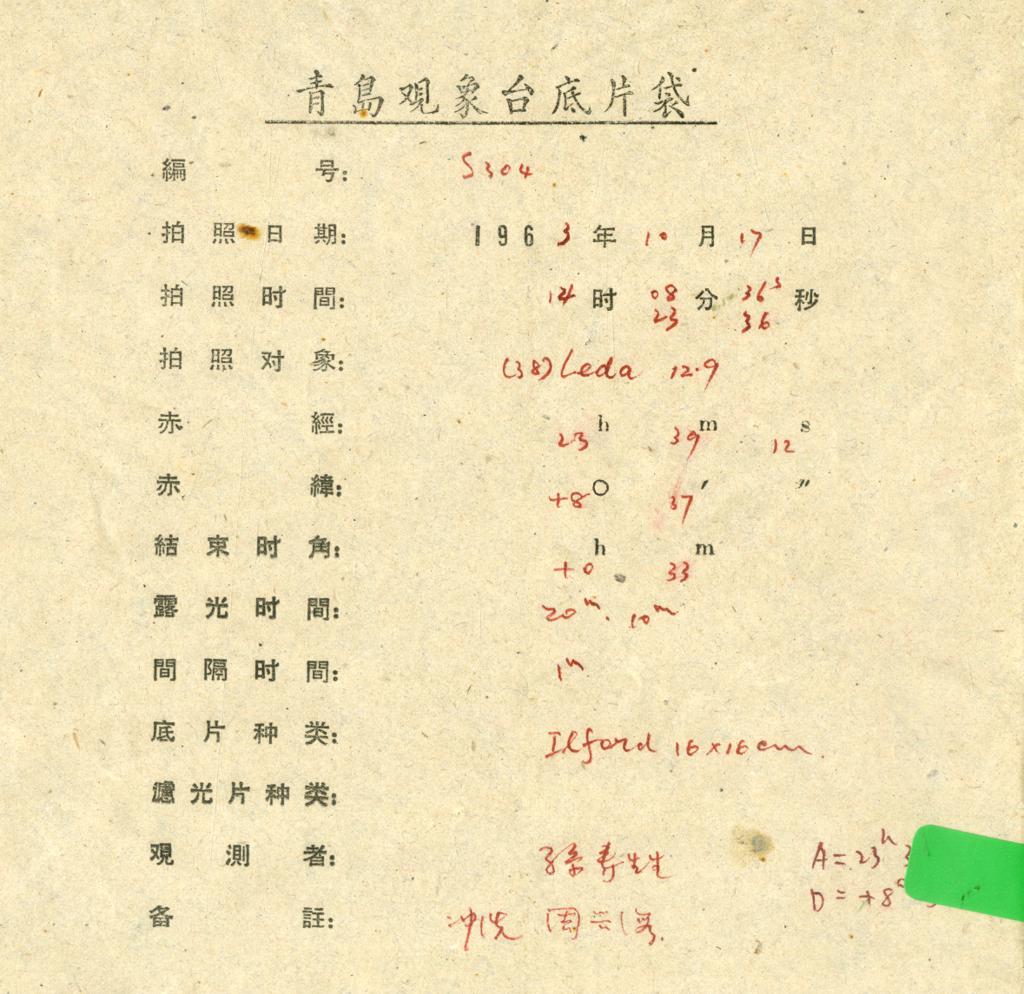 青島观象台底片袋
編 号: S304
拍照日期: 1963年10月17日
拍照时間: 14时08分36s秒
23 36
拍照对象: (38)Leda 12.9
赤 經: 23h 39m 12s
赤 緯: +8° 37′ ″
結束时角: +0h 33m
露光时間: 20m. 10m
間隔时間: 1m
底片种类: Ilford 16×16cm.
濾光片种类:
观測者: 孫寿
A=23h
D=+8°
备 註: 冲洗 周